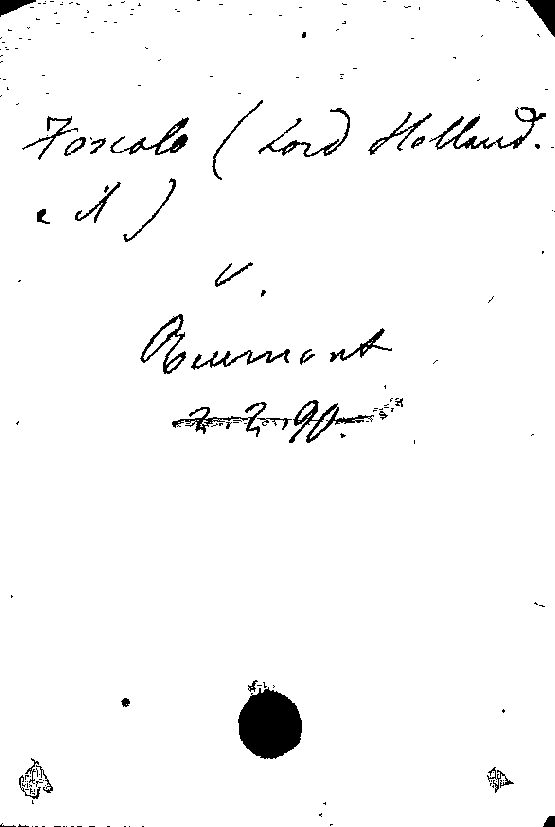 Foscolo (Lord Holland.
e A)
v.
Reumont
2.2.90.